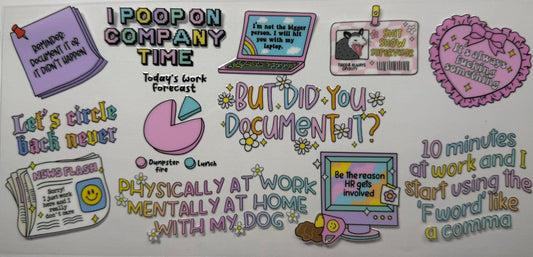 REMINDER:
DOCUMENT IT OR
IT DIDN'T HAPPEN
I POOP ON
COMPANY
TIME
I'm not the bigger
person. I will hit
you with my
laptop.
SHIT
SHOW
SUPERVISOR
It's always
fucking
something
Let's circle
back never
Today's Work
Forecast
Dumpster
fire
Lunch
BUT DID YOU
DOCUMENT IT?
NEWS FLASH
Sorry!
I just work
here and I
really
don't care
PHYSICALLY AT WORK
MENTALLY AT HOME
WITH MY DOG
Be the reason
HR gets
involved
10 minutes
at work and I
start using the
'F word' like
a comma